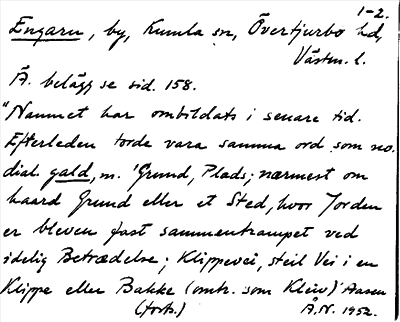 1-2.
Engaru, by, Kumla sn, Övertjurbo hd,
Västm. l.
Ä. belägg se sid. 158.
"Namnet har ombildats i senare tid.
Efterleden torde vara samma ord som no.
dial. gald, m. 'Grund, Plads; nærmest om
haard Grund eller et Sted, hvor Jorden
er bleven fast sammentrampet ved
idelig Betrædelse; Klippevei, steil Vei i en
Klippe eller Bakke (omtr. som Kleiv)' Aasen
(forts.) Å.N. 1952.